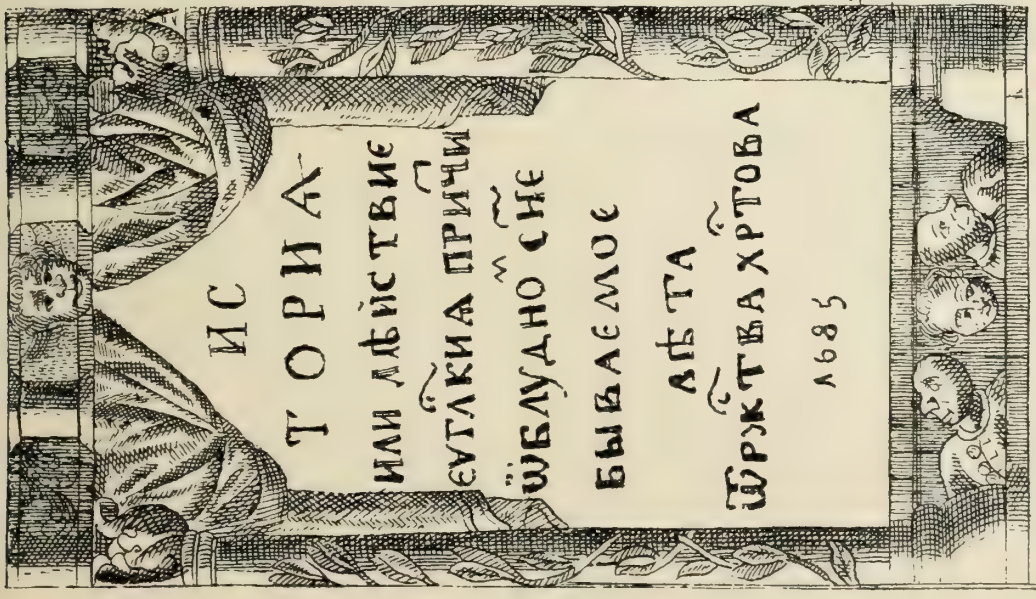 ИС
ТОРИА
ИЛИ ДѢЙСТВИЕ
ЄѴГЛ҃КИА ПРИ҃ЧИ
ѾБЛУДНО С҃НЄ
БЫВАЄМОЄ
ЛѢТА
ѾРЖ҃ТВА ХР҃ТОВА
1685